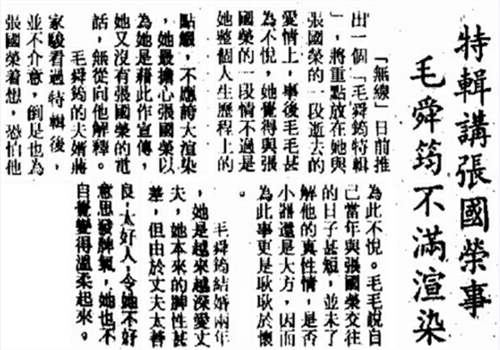 特輯講張國榮事
毛舜筠不滿渲染
「無線」日前推
出一個「毛舜筠特輯
」,將重點放在她與
張國榮的一段逝去的
愛情上,事後毛毛甚
為不悅,她覺得與張
國榮的一段情不過是
她整個人生歷程上的
點綴,不應誇大渲染
,她最擔心張國榮以
為她是藉此作宣傳,
她又沒有張國榮的電
話,無從向他解釋。
毛舜筠的夫婿蔣
家駿看過特輯後,
並不介意,倒是也為
張國榮着想,恐怕他
為此不悅。毛毛說自
己當年與張國榮交往
的日子甚短,並未了
解他的真性情,是否
小器還是大方,因而
為此事更是耿耿於懷
。
毛舜筠結婚兩年
,她是越來越深愛丈
夫,她本來的脾性甚
差,但由於丈夫太善
良,太好人,令她不好
意思發脾氣,她也不
自覺變得溫柔起來。